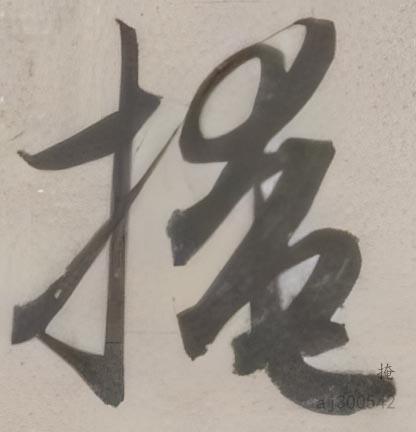 掩
掩
aj300542